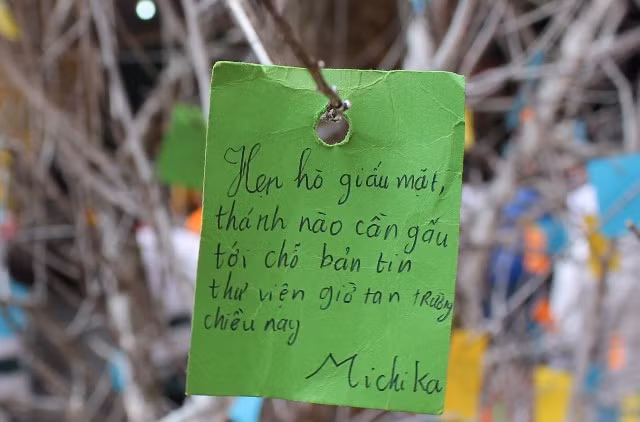 Hẹn hò giấu mặt,
thánh nào cần gấu
tới chỗ bản tin
thư viện giờ tan trường
chiều nay
Michika